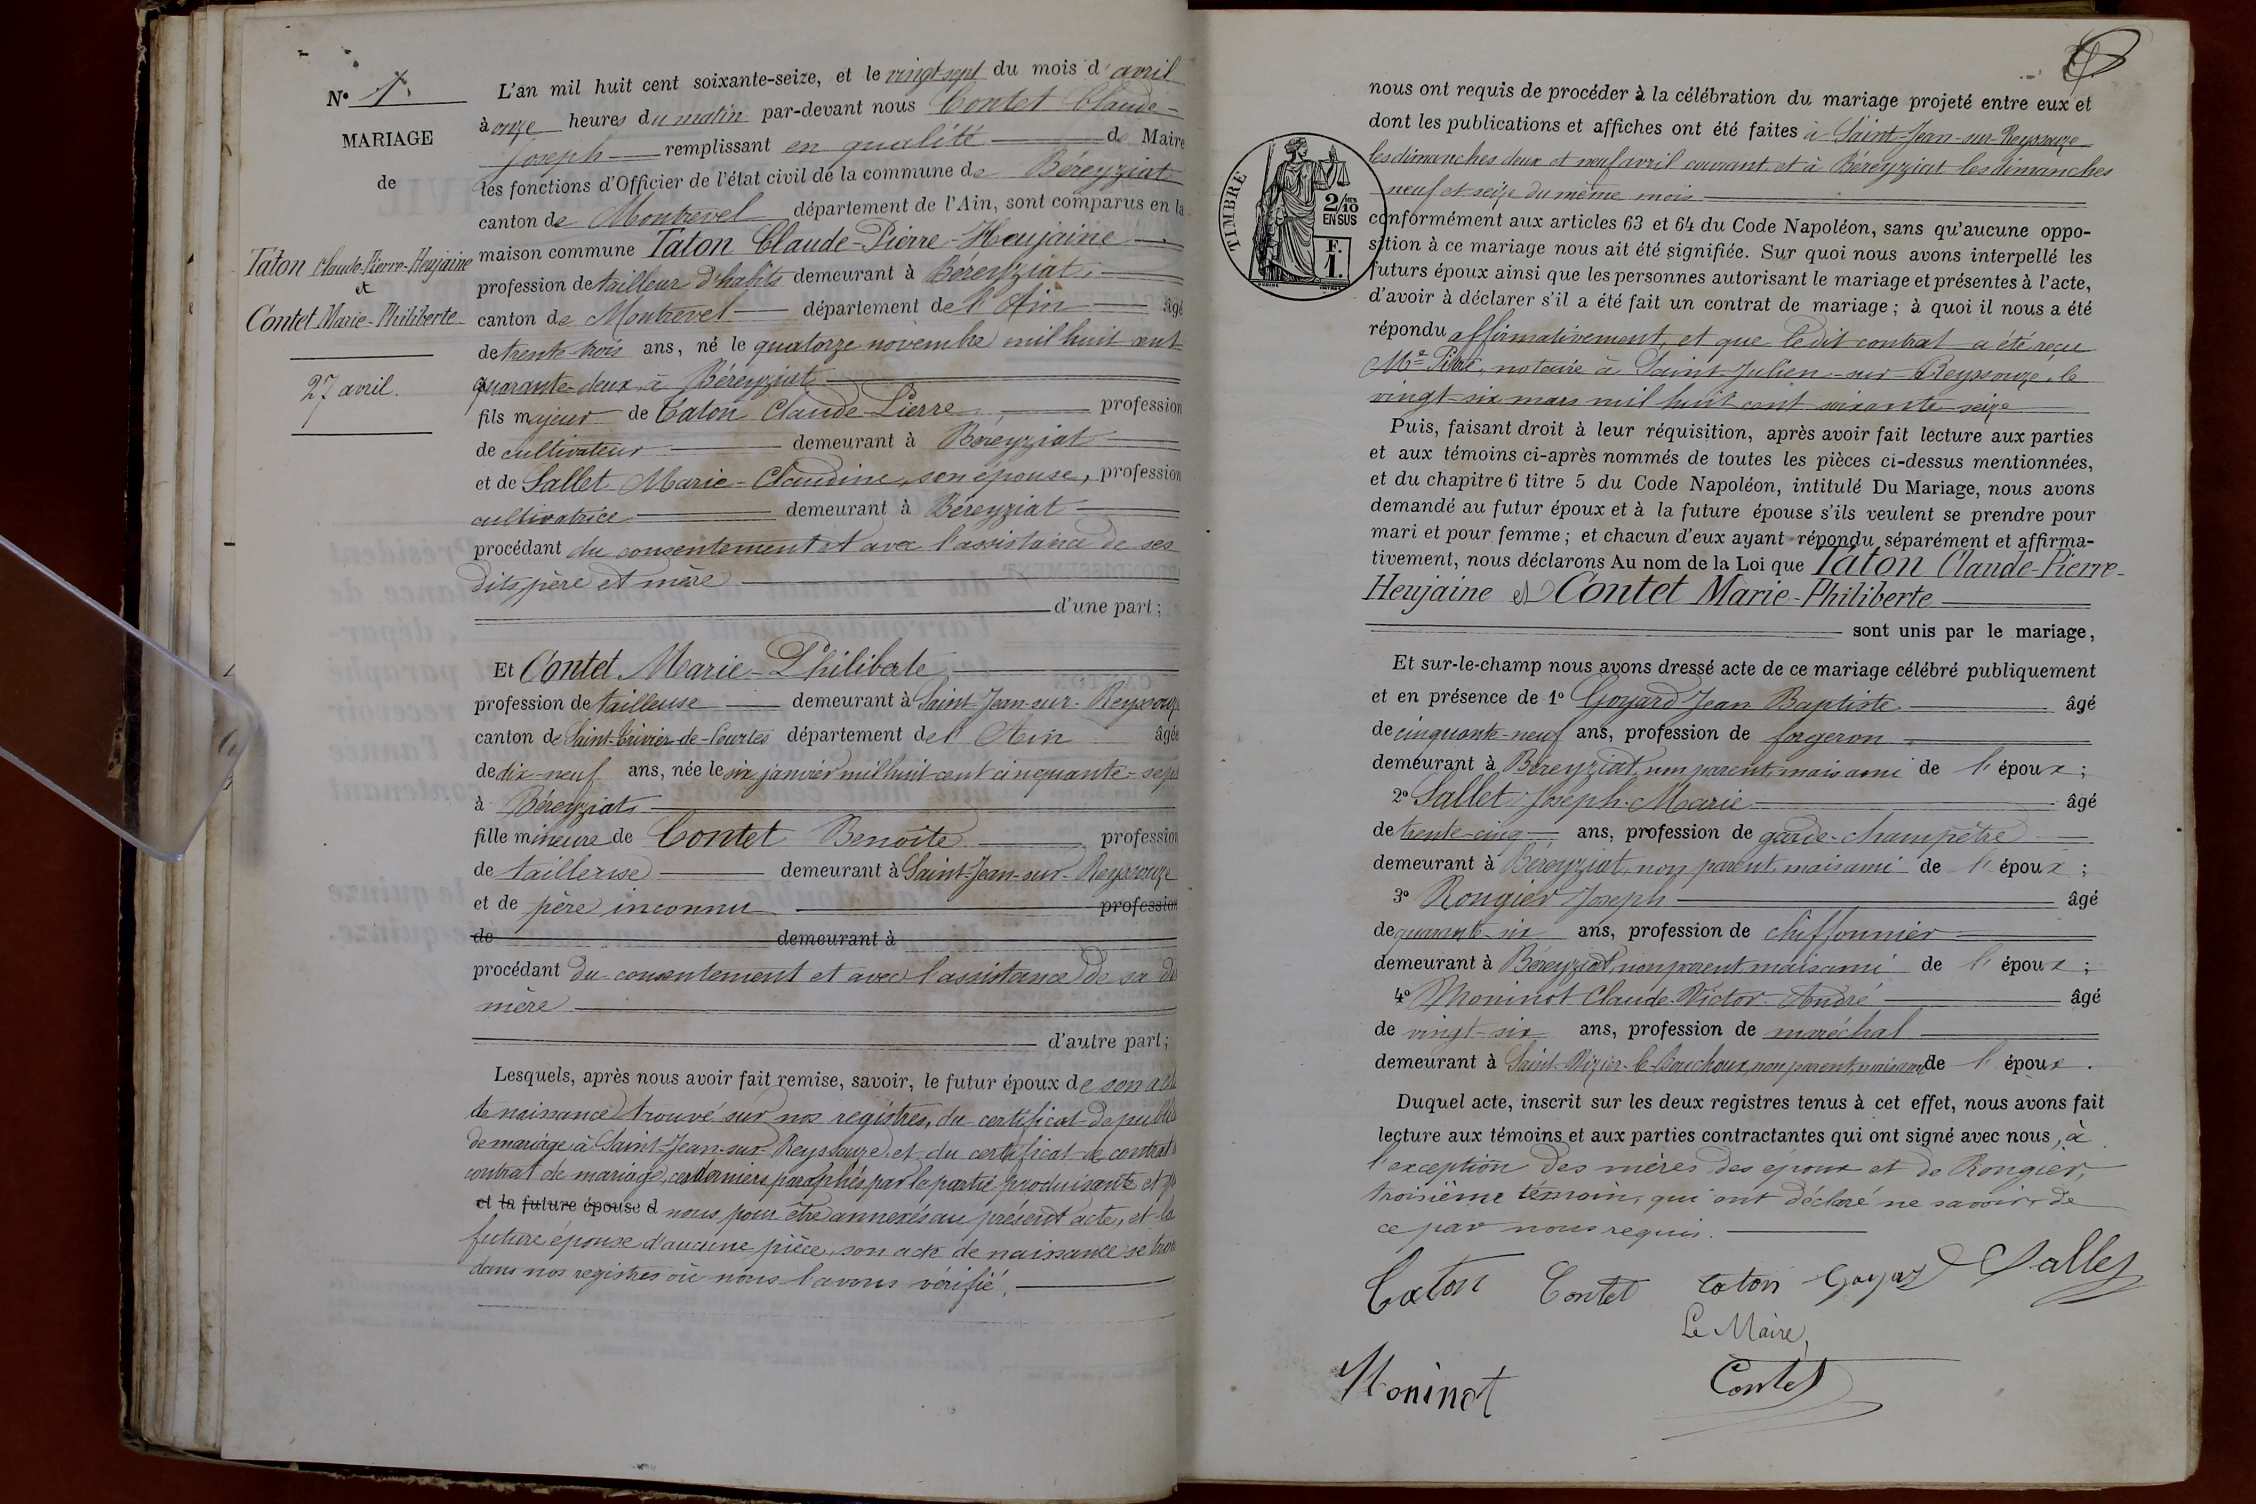 N° 4.
MARIAGE
de
Taton Claude-Pierre-Heujaine
et
Contet Marie-Philiberte
27 avril.
L'an mil huit cent soixante-seize, et le vingt-sept du mois d'avril
à onze heures du matin par-devant nous Contet Claude-
Joseph remplissant en qualité de Maire
les fonctions d'Officier de l'état civil de la commune de Béreyziat
canton de Montrevel département de l'Ain, sont comparus en la
maison commune Taton Claude-Pierre-Heujaine
profession de tailleur d'habits demeurant à Béreyziat,
canton de Montrevel département de l'Ain âgé
de trente-trois ans, né le quatorze novembre mil huit cent
quarante-deux, à Béreyziat
fils majeur de Taton Claude-Pierre profession
de cultivateur demeurant à Béreyziat
et de Sallet Marie-Claudine, son épouse, profession
cultivatrice demeurant à Béreyziat
procédant du consentement et avec l'assistance de ses
dits père et mère
d'une part;
Et Contet Marie-Philiberte
profession de tailleuse demeurant à Saint-Jean-sur-Reyssouze
canton de Saint-Trivier-de-Courtes département de l'Ain âgée
de dix-neuf ans, née le six janvier mil huit cent cinquante-sept
à Béreyziat
fille mineure de Contet Benoite profession
de tailleuse demeurant à Saint-Jean-sur-Reyssouze
et de père inconnu profession
de demeurant à
procédant du consentement et avec l'assistance de sa dite
mère
d'autre part;
Lesquels, après nous avoir fait remise, savoir, le futur époux de son acte
de naissance trouvé sur nos registres, du certificat de publi
de mariage à Saint-Jean-sur-Reyssouze et du certificat de contrat
contrat de mariage, ces derniers paraphés par la partie produisante et p
et la future épouse d nous pour être annexés au présent acte, et la
future épouse d'aucune pièce, son acte de naissance se trou
dans nos registres où nous l'avons vérifié.
nous ont requis de procéder à la célébration du mariage projeté entre eux et
dont les publications et affiches ont été faites à Saint-Jean-sur-Reyssouze
les dimanches deux et neuf avril courant et à Béreyziat les dimanches
neuf et seize du même mois
TIMBRE
2/10 EN SUS
F. 1.
conformément aux articles 63 et 64 du Code Napoléon, sans qu'aucune oppo-
sition à ce mariage nous ait été signifiée. Sur quoi nous avons interpellé les
futurs époux ainsi que les personnes autorisant le mariage et présentes à l'acte,
d'avoir à déclarer s'il a été fait un contrat de mariage; à quoi il nous a été
répondu affirmativement, et que ledit contrat a été reçu
Me notaire à Saint-Julien-sur-Reyssouze, le
vingt-six mars mil huit cent soixante-seize
Puis, faisant droit à leur réquisition, après avoir fait lecture aux parties
et aux témoins ci-après nommés de toutes les pièces ci-dessus mentionnées,
et du chapitre 6 titre 5 du Code Napoléon, intitulé Du Mariage, nous avons
demandé au futur époux et à la future épouse s'ils veulent se prendre pour
mari et pour femme; et chacun d'eux ayant répondu séparément et affirma-
tivement, nous déclarons Au nom de la Loi que Taton Claude-Pierre-
Heujaine et Contet Marie-Philiberte
sont unis par le mariage,
Et sur-le-champ nous avons dressé acte de ce mariage célébré publiquement
et en présence de 1° Goyard Jean Baptiste âgé
de cinquante-neuf ans, profession de forgeron
demeurant à Béreyziat, non parent, mais ami de l'époux;
2° Sallet Joseph-Marie âgé
de trente-cinq ans, profession de garde-champêtre
demeurant à Béreyziat, non parent, mais ami de l'époux;
3° Rongier Joseph âgé
de quarante-six ans, profession de chiffonnier
demeurant à Béreyziat, non parent mais ami de l'époux;
4° Moninot Claude-Victor-André âgé
de vingt-six ans, profession de maréchal
demeurant à Saint-Nizier-le-Bouchoux, non parent, mais ami de l'époux.
Duquel acte, inscrit sur les deux registres tenus à cet effet, nous avons fait
lecture aux témoins et aux parties contractantes qui ont signé avec nous, à
l'exception des mères des époux et de Rongier,
troisième témoin, qui ont déclaré ne savoir, de
ce par nous requis.
Taton Contet Taton Goyard Sallet
Le Maire,
Moninot Contet